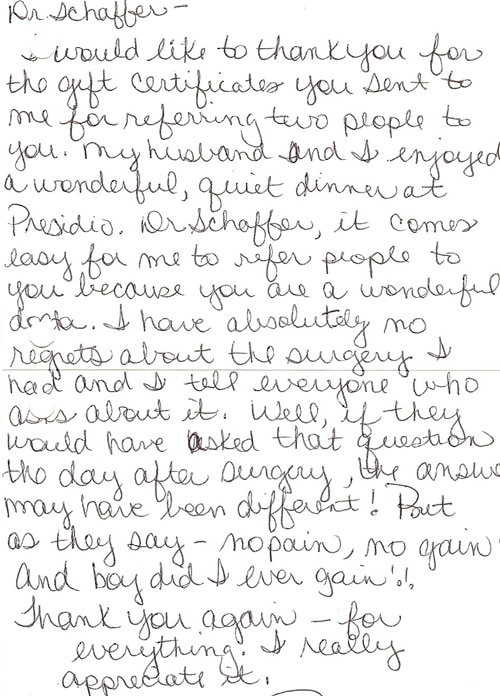 Dr. Schaffer -
I would like to thank you for
the gift certificates you sent to
me for referring two people to
you. My husband and I enjoyed
a wonderful, quiet dinner at
Presidio. Dr Schaffer, it comes
easy for me to refer people to
you because you are a wonderful
I have absolutely no
regrets about the surgery I
had and I tell everyone who
asks about it. Well, if they
would have asked that question
the day after surgery, the answe
may have been different! But
as they say - no pain, no gain!
And boy did I ever gain!!
Thank you again - for
everything. I really
appreciate it.